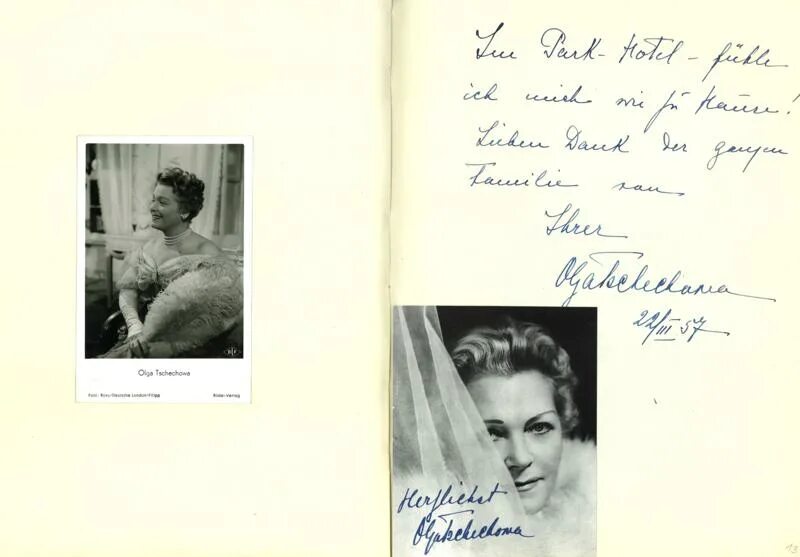 Olga Tschechowa
Foto: Roxy/Deutsche London/Filipp
Rüdel-Verlag
Im Park-Hotel - fühle
ich mich wie zu Hause!
Lieben Dank der ganzen
Familie von
Ihrer
Olga Tschechowa
22/III 57
Herzlichst
Olga Tschechowa
13